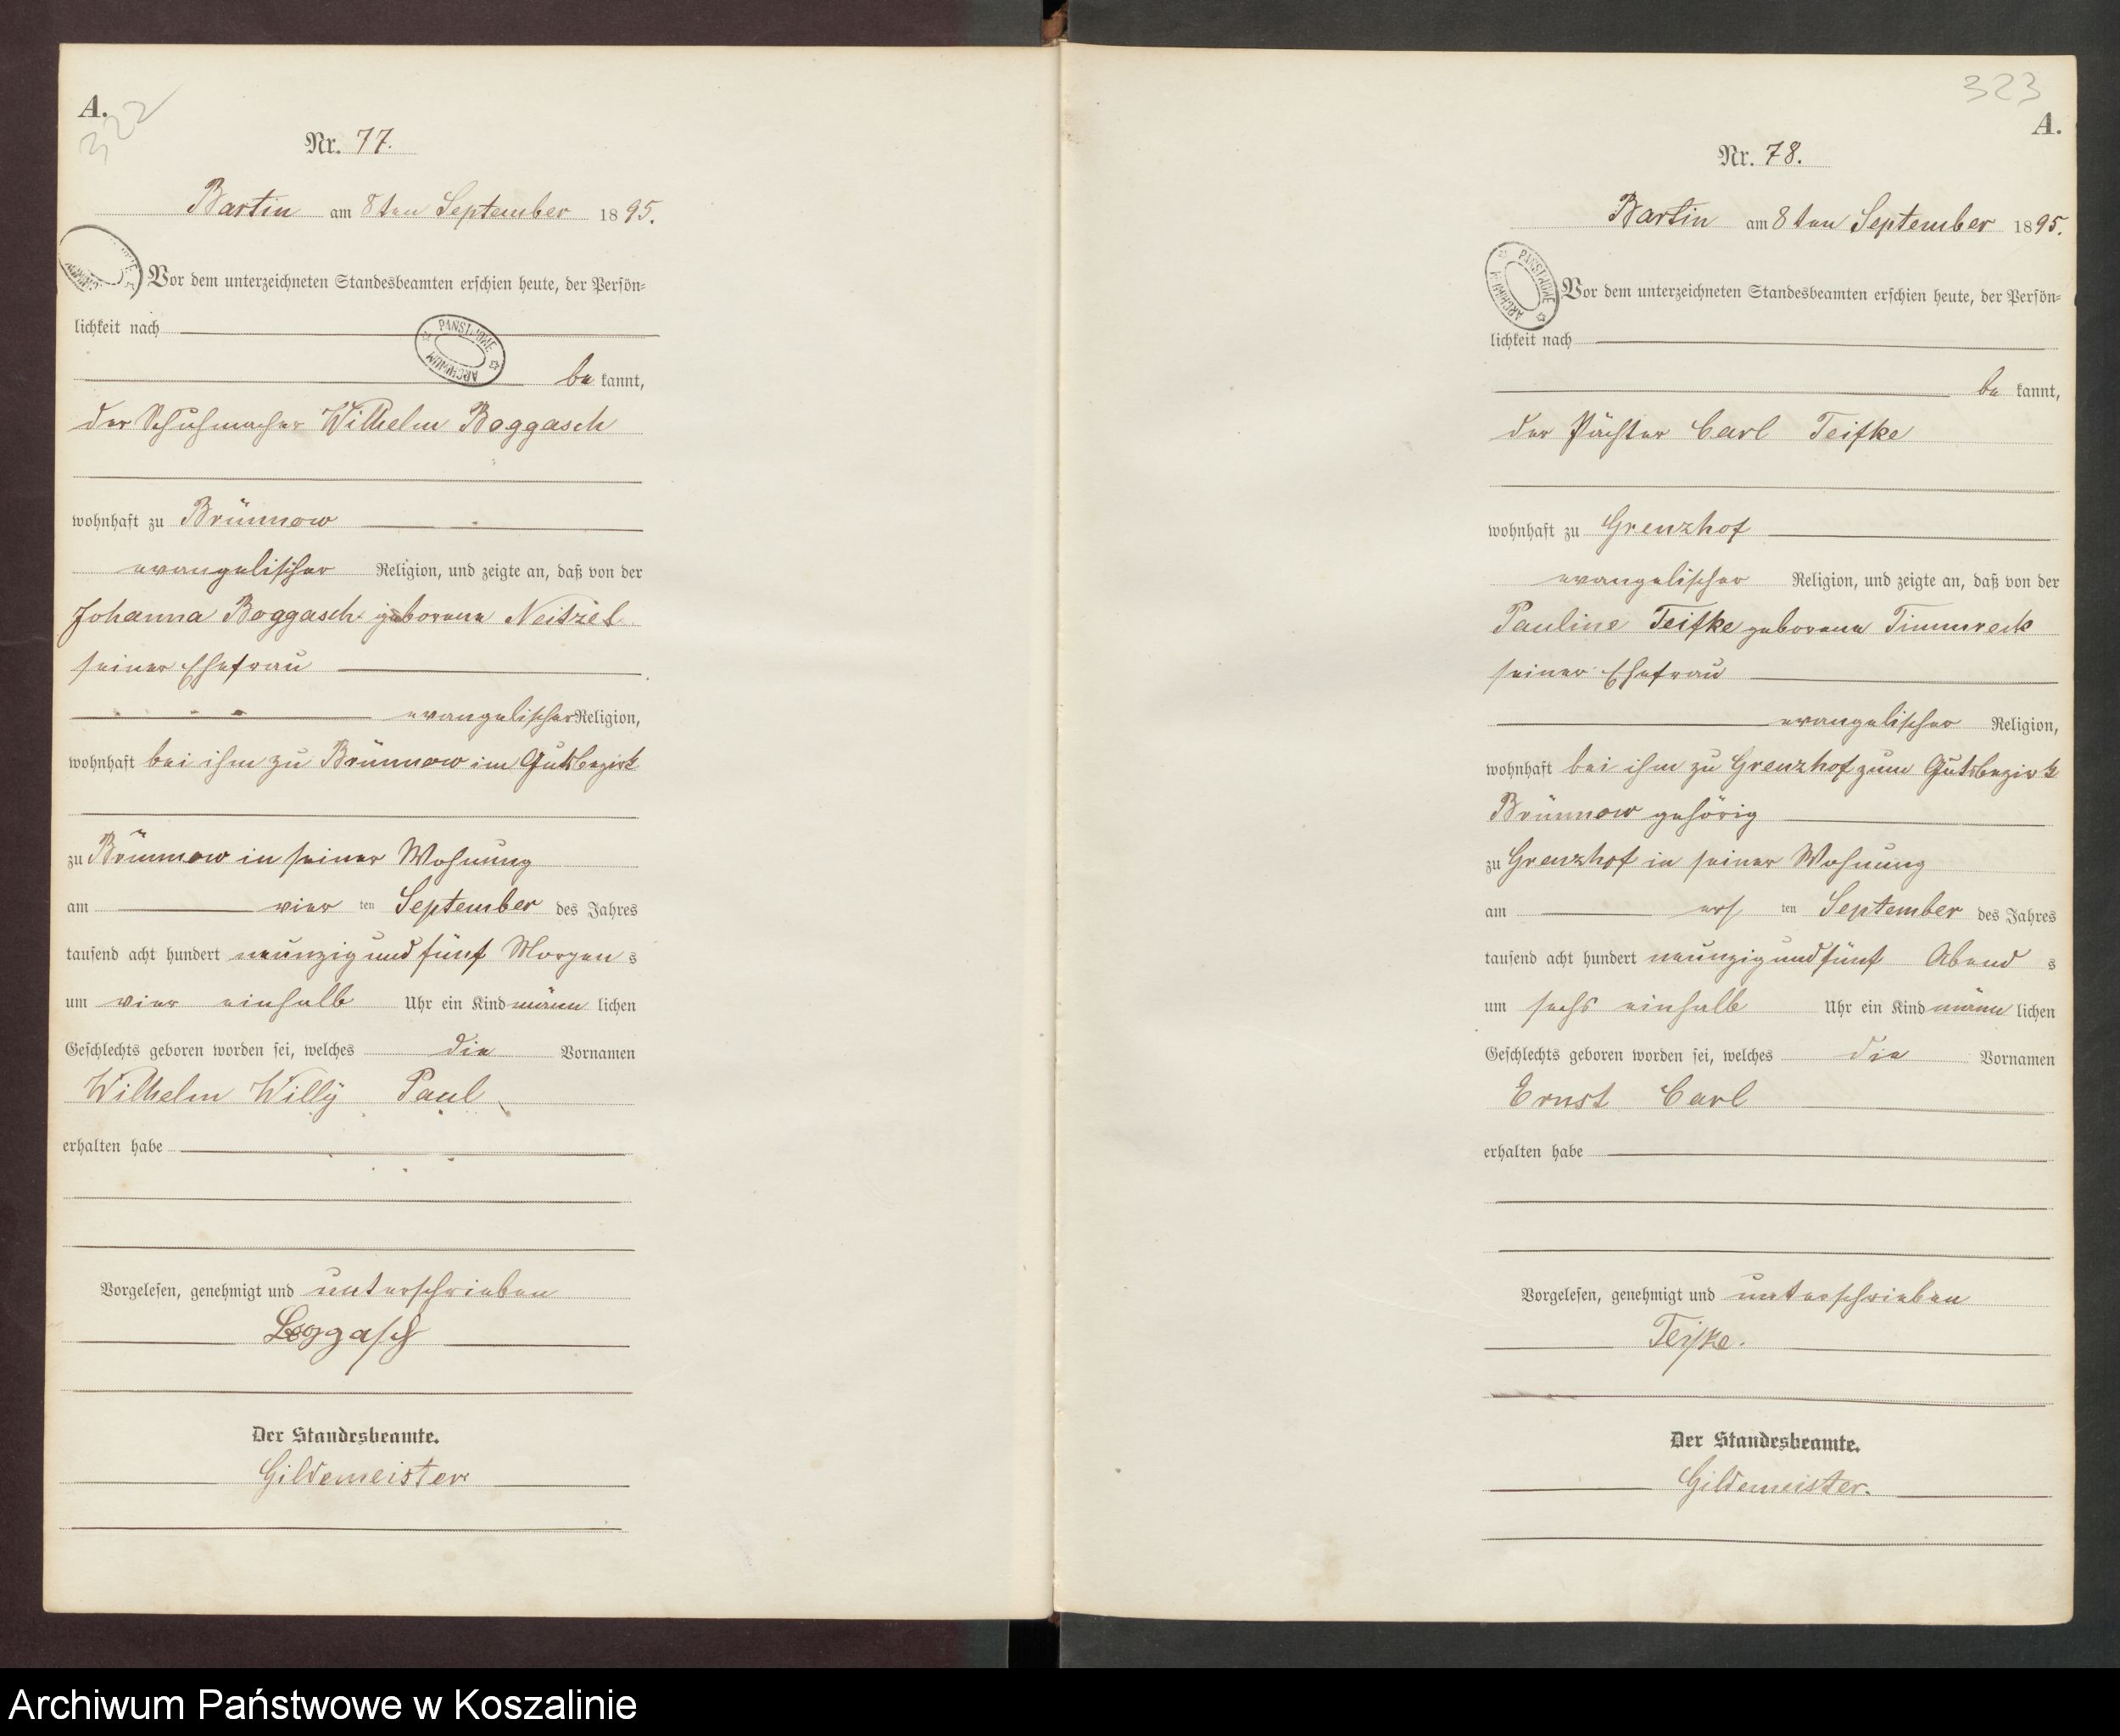 A.
322
Nr. 77.
Bartin am 8ten September 1895.
Vor dem unterzeichneten Standesbeamten erschien heute, der Persön-
lichkeit nach
PANSTWOWE ARCHIWUM
be kannt,
der Schuhmacher Wilhelm Boggasch
wohnhaft zu Brünnow
evangelischer Religion, und zeigte an, daß von der
Johanna Boggasch geborene Neitzel
seiner Ehefrau
evangelischer Religion,
wohnhaft bei ihm zu Brünnow im Gutsbezirk
zu Brünnow in seiner Wohnung
am vier ten September des Jahres
tausend acht hundert neunzig und fünf Morgen s
um vier einhalb Uhr ein Kind männ lichen
Geschlechts geboren worden sei, welches die Vornamen
Wilhelm Willÿ Paul
erhalten habe
Vorgelesen, genehmigt und unterschrieben
Boggasch
Der Standesbeamte.
Gildemeister
323
A.
Nr. 78.
Bartin am 8ten September 1895.
PANSTWOWE ARCHIWUM
Vor dem unterzeichneten Standesbeamten erschien heute, der Persön-
lichkeit nach
be kannt,
der Pächter Carl Teifke
wohnhaft zu Grenzhof
evangelischer Religion, und zeigte an, daß von der
Pauline Teifke geborene Timmreck
seiner Ehefrau
evangelischer Religion,
wohnhaft bei ihm zu Grenzhof zum Gutsbezirk
Brünnow gehörig
zu Grenzhof in seiner Wohnung
am ers ten September des Jahres
tausend acht hundert neunzig und fünf Abend s
um sechs einhalb Uhr ein Kind männ lichen
Geschlechts geboren worden sei, welches die Vornamen
Ernst Carl
erhalten habe
Vorgelesen, genehmigt und unterschrieben
Teifke.
Der Standesbeamte.
Gildemeister.
Archiwum Państwowe w Koszalinie